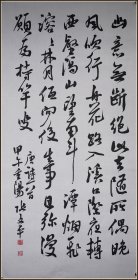 幽意無斷絕此去隨所偶晚
風吹行舟花路入溪口際夜轉
西壑隔山望南斗潭煙飛
溶々林月低向後生事且彌漫
願為持竿叟
唐詩一首
甲午